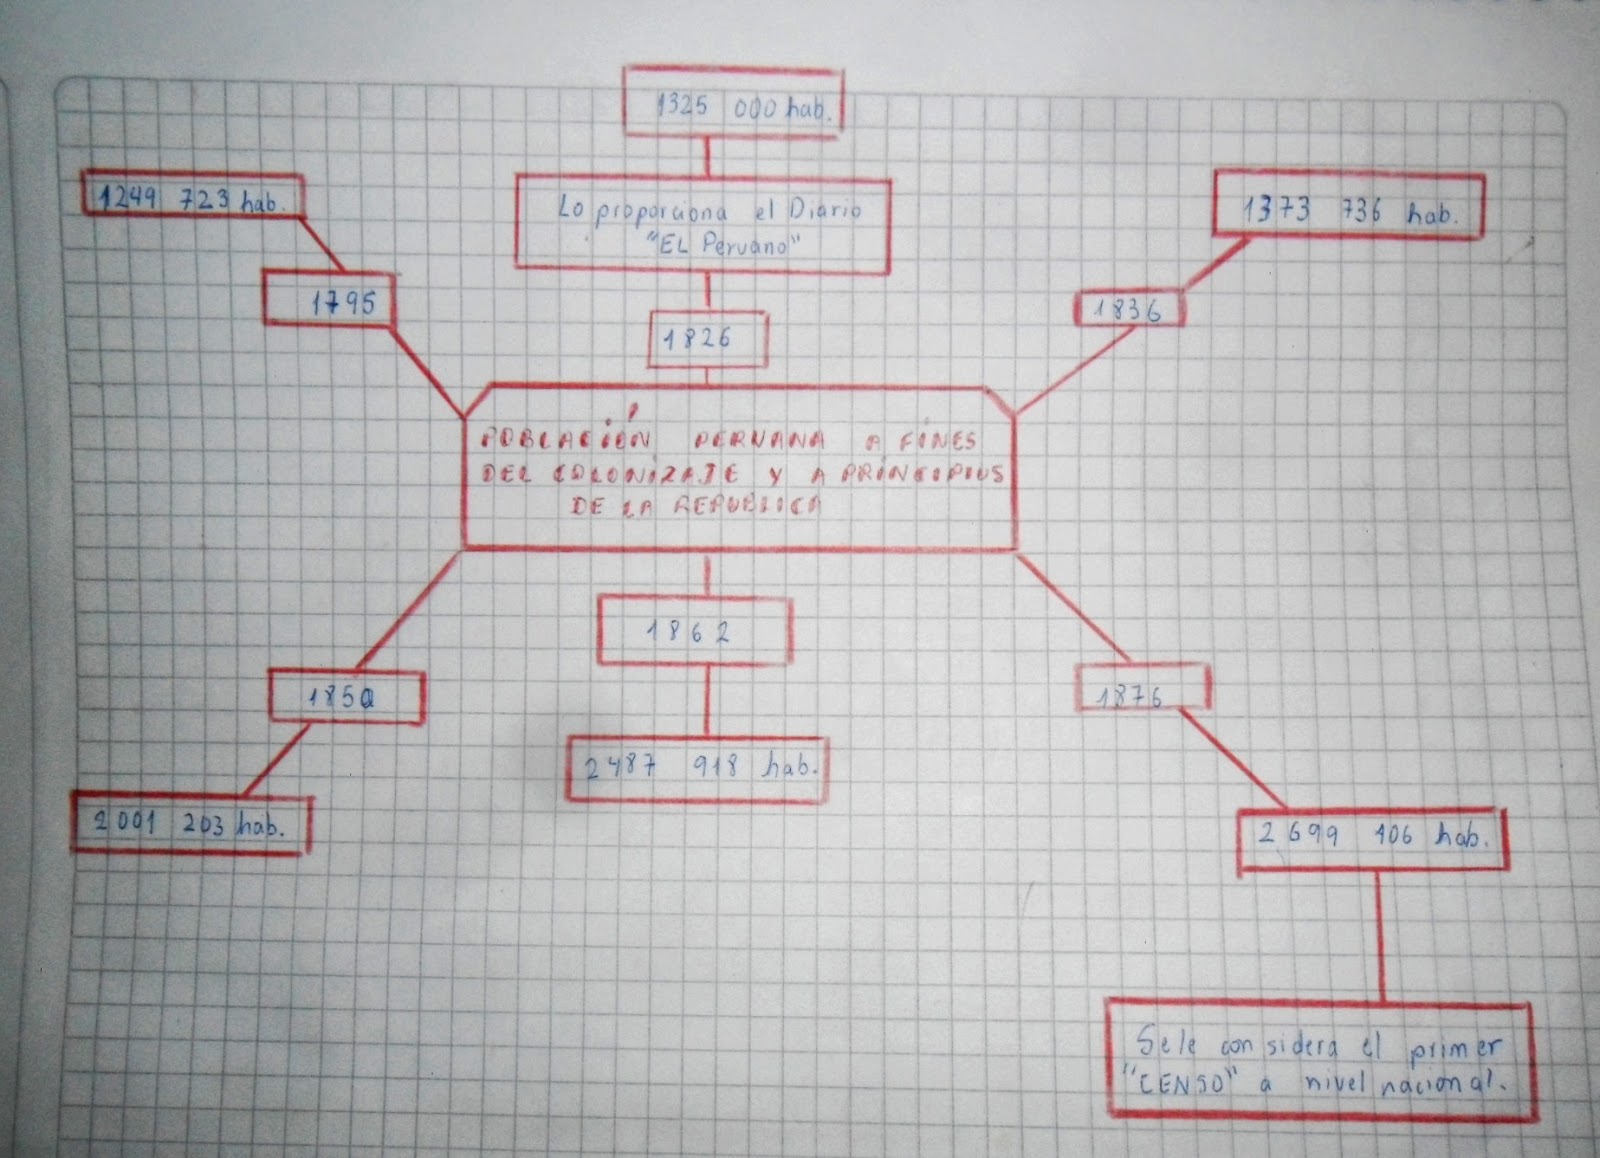 1325 000 hab.
1249 723 hab.
Lo proporciona el Diario
"EL Peruano"
1373 736 hab.
1795
1826
1836
POBLACIÓN PERUANA A FINES
DEL COLONIZAJE Y A PRINCIPIOS
DE LA REPUBLICA
1862
1850
1876
2487 918 hab.
2 001 203 hab.
2 699 106 hab.
Se le considera el primer
"CENSO" a nivel nacional.